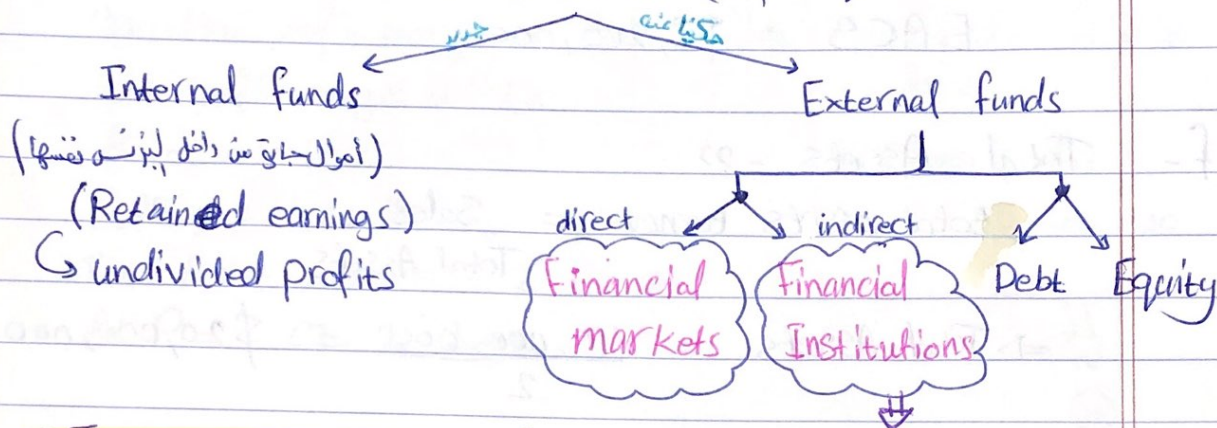 جديد
حكينا عنه
Internal funds
External funds
(أموال جاية من داخل البزنس نفسها)
(Retained earnings)
↳ undivided profits
direct
indirect
Financial markets
Financial Institutions
Debt
Equity